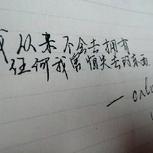 我从来不会去拥有
任何我害怕失去的东西